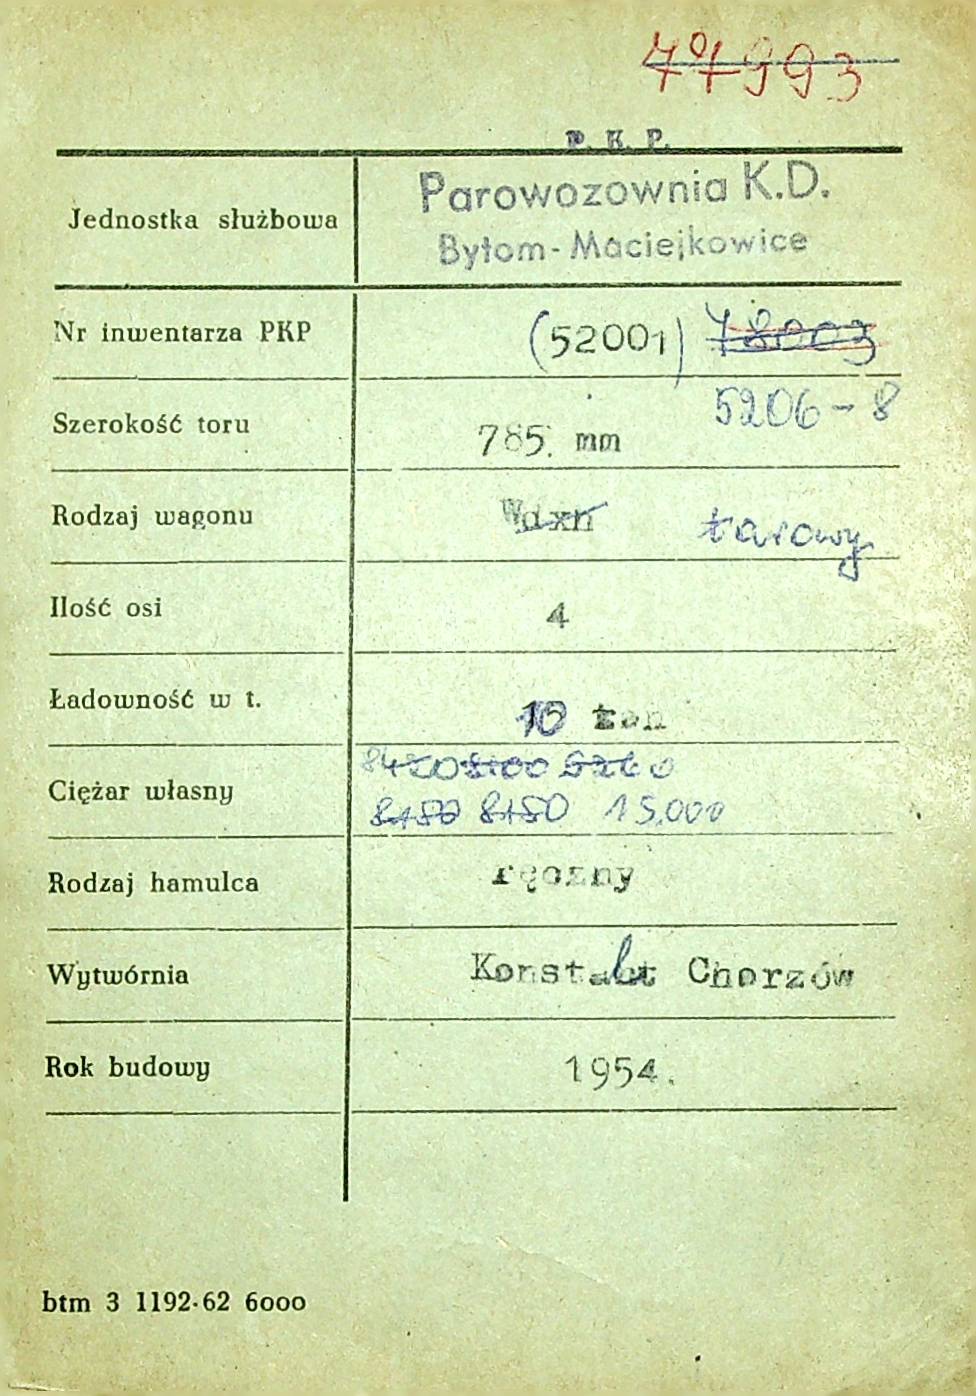 77993
P. K. P.
Jednostka służbowa Parowozownia K.D.
Bytom-Maciejkowice
Nr inwentarza PKP (52001) 78003
5206-8
Szerokość toru 785. mm
Rodzaj wagonu Wdxh tarowy
Ilość osi 4
Ładowność w t. 10 ton
8420 8100 8260
Ciężar własny 8180 8150 15.000
Rodzaj hamulca ręczny
Wytwórnia Konstalt Chorzów
Rok budowy 1954.
btm 3 1192-62 6000